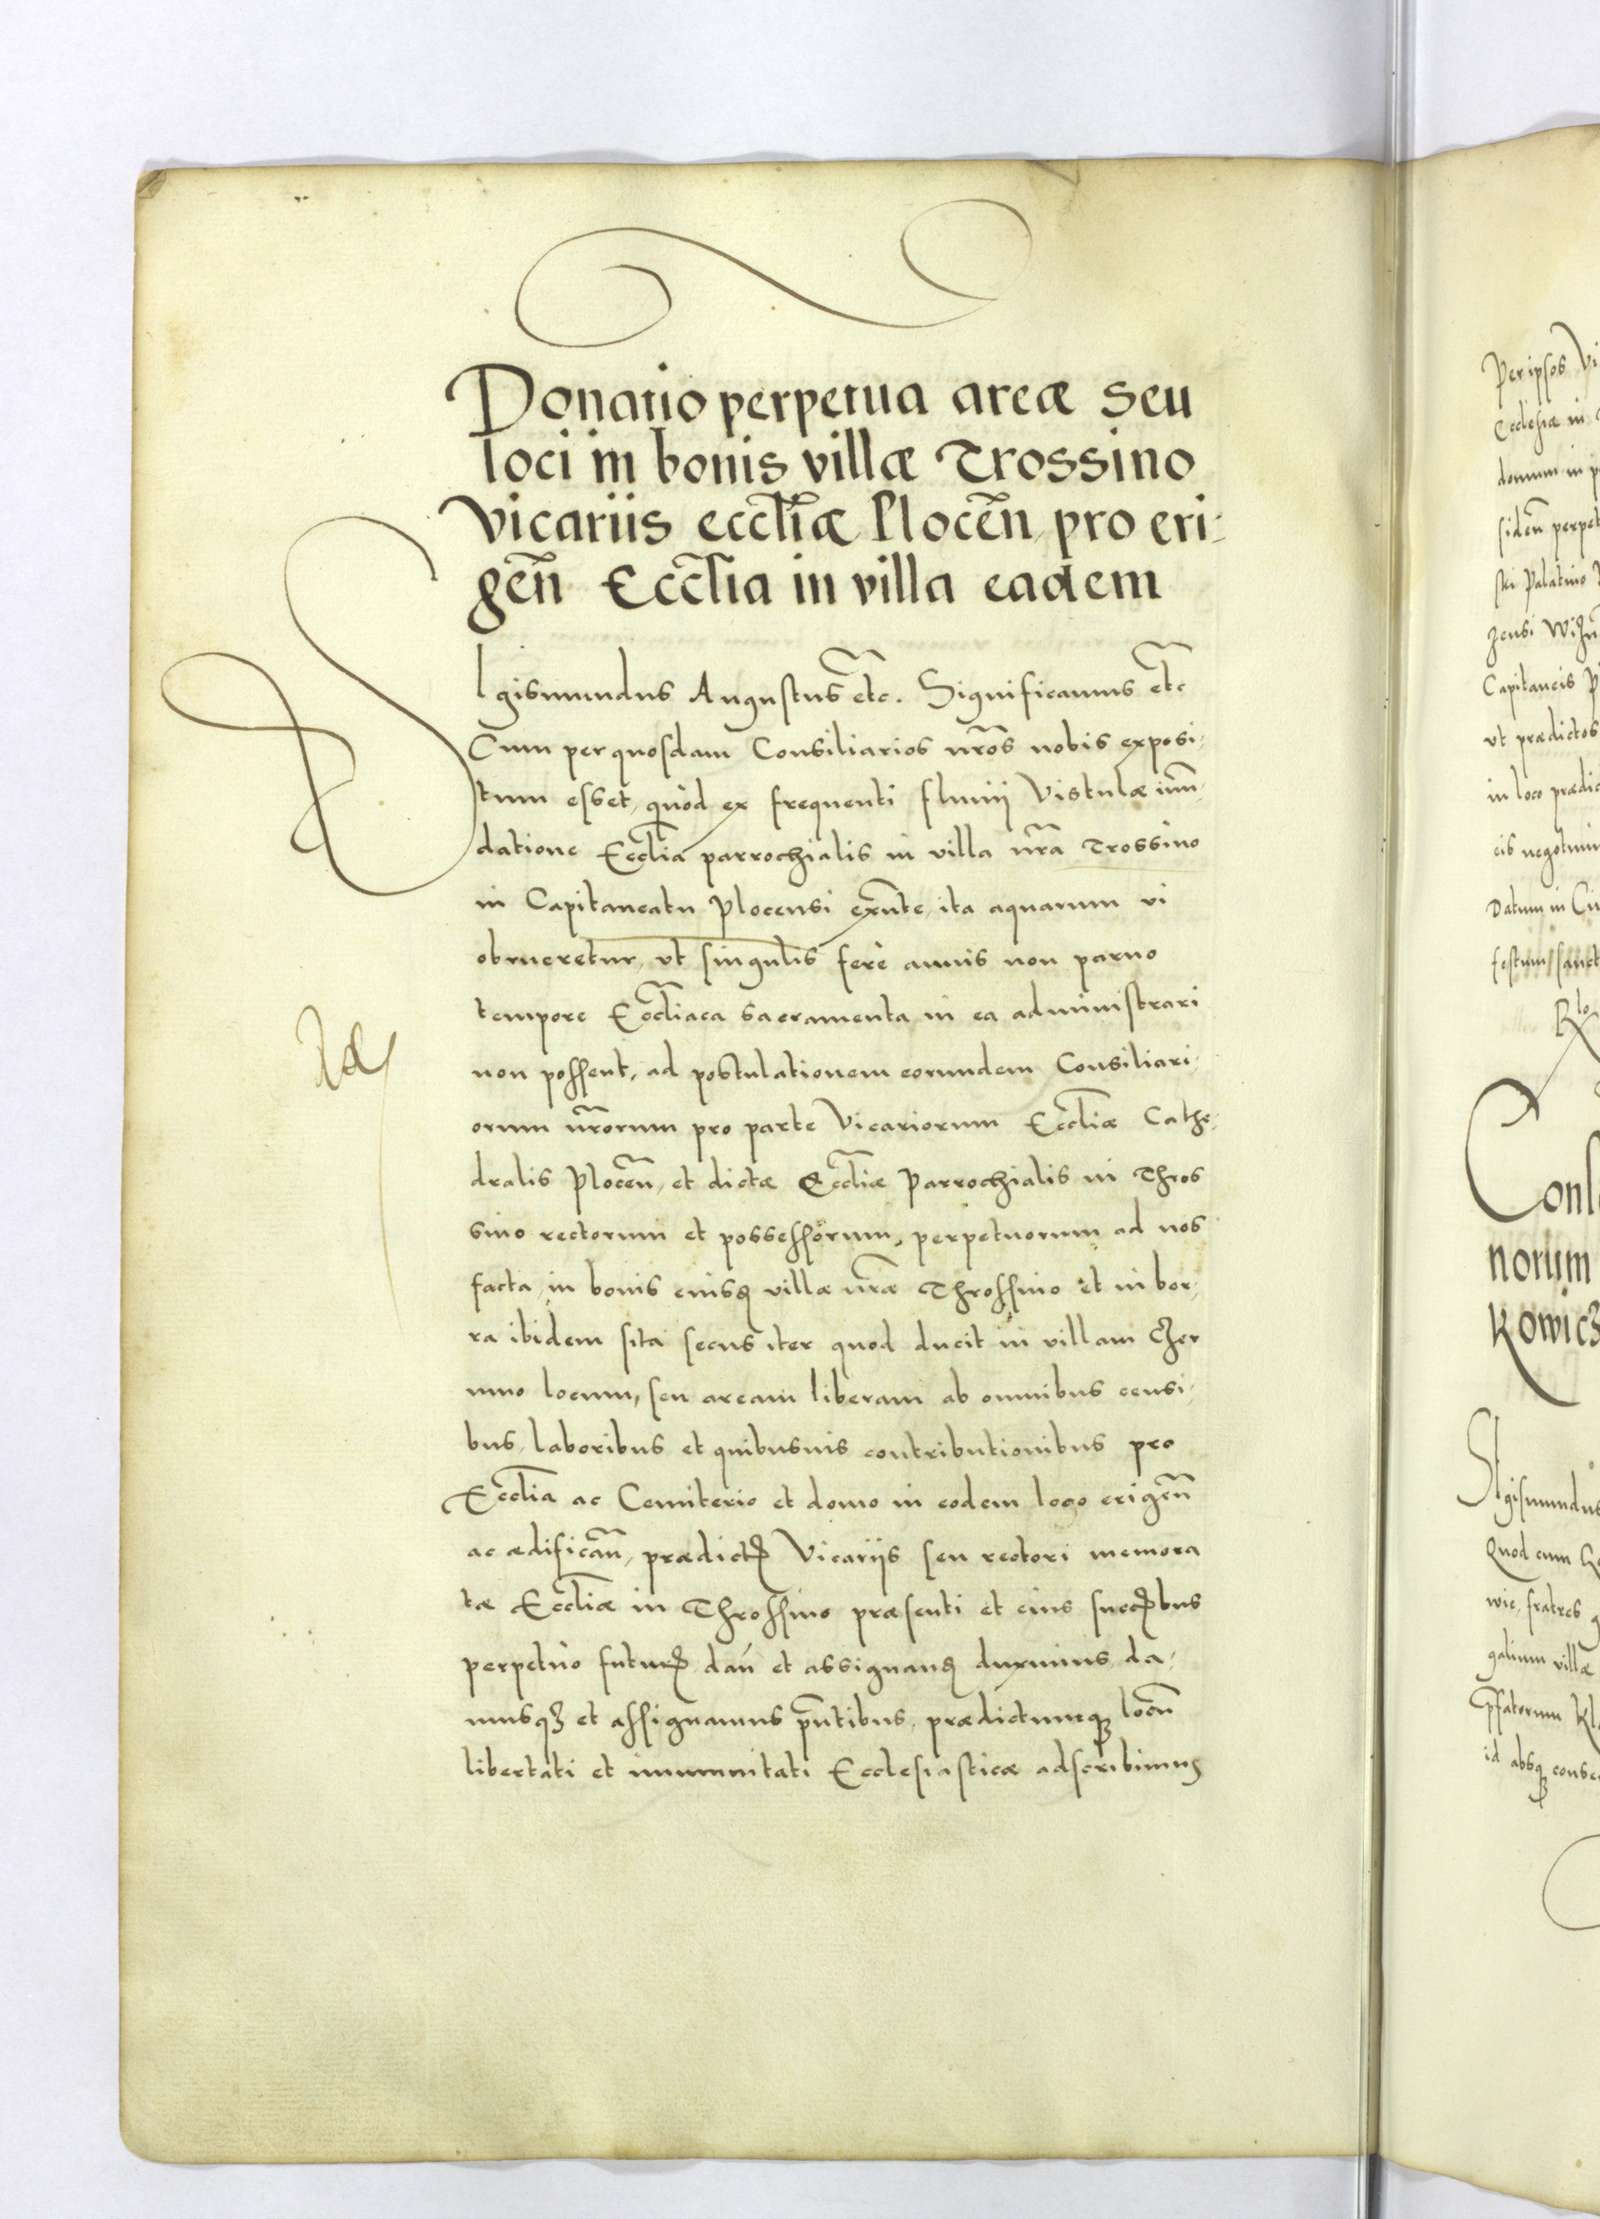 Donatio perpetua areæ seu
loci in bonis villæ Trossino
Vicariis eccl̃iæ Plocen̄, pro eri-
gen̄ Eccl̃ia in villa eadem
SIgismundus Augustus etc. Significamus etc
Cum per quosdam Consiliarios nr̃os nobis exposi-
tum esset, quòd ex frequenti fluuij Vistulæ inun-
datione Eccl̃ia parrochialis in villa nr̃a Trossino
in Capitaneatu Plocensi exñte, ita aquarum vi
obrueretur, vt singulis ferè annis non paruo
tempore Eccl̃iaca sacramenta in ea administrari
non possent, ad postulationem eorundem Consiliari-
orum nr̃orum pro parte Vicariorum Eccl̃iæ Cathe-
dralis Plocen̄, et dictæ Eccl̃iæ Parrochialis in Thros
sino rectorum et possessorum, perpetuorum ad nos
facta, in bonis eiusdꝫ villæ nr̃æ Throssino et in bor-
ra ibidem sita secus iter quod ducit in villam Czer
mno locum, seu aream liberam ab omnibus censi-
bus, laboribus et quibusuis contributionibus pro
Eccl̃ia ac Cemiterio et domo in eodem loco erigen̄
ac ædifican̄, prædictꝭ Vicariis seu rectori memora
tæ Eccl̃iæ in Throssino præsenti et eius succꝭbus
perpetuò futurꝭ dan̄ et assignanꝭ duximus, da-
musqꝫ et assignamus pñtibus, prædictumqꝫ locū
libertati et immunitati Ecclesiasticæ adscribimus
Per ipsos
Ecclesiæ in
domum in
siden̄ perpet
ski Palatino
zensi
Capitaneis
vt prædictos
in loco prædic
eis negotium
Datum in
festum sanct
Cons
norum
kowicz
SIgismundus
Quod cum
wie, fratres
galium villæ
p̃fatorum
id absqꝫ conse